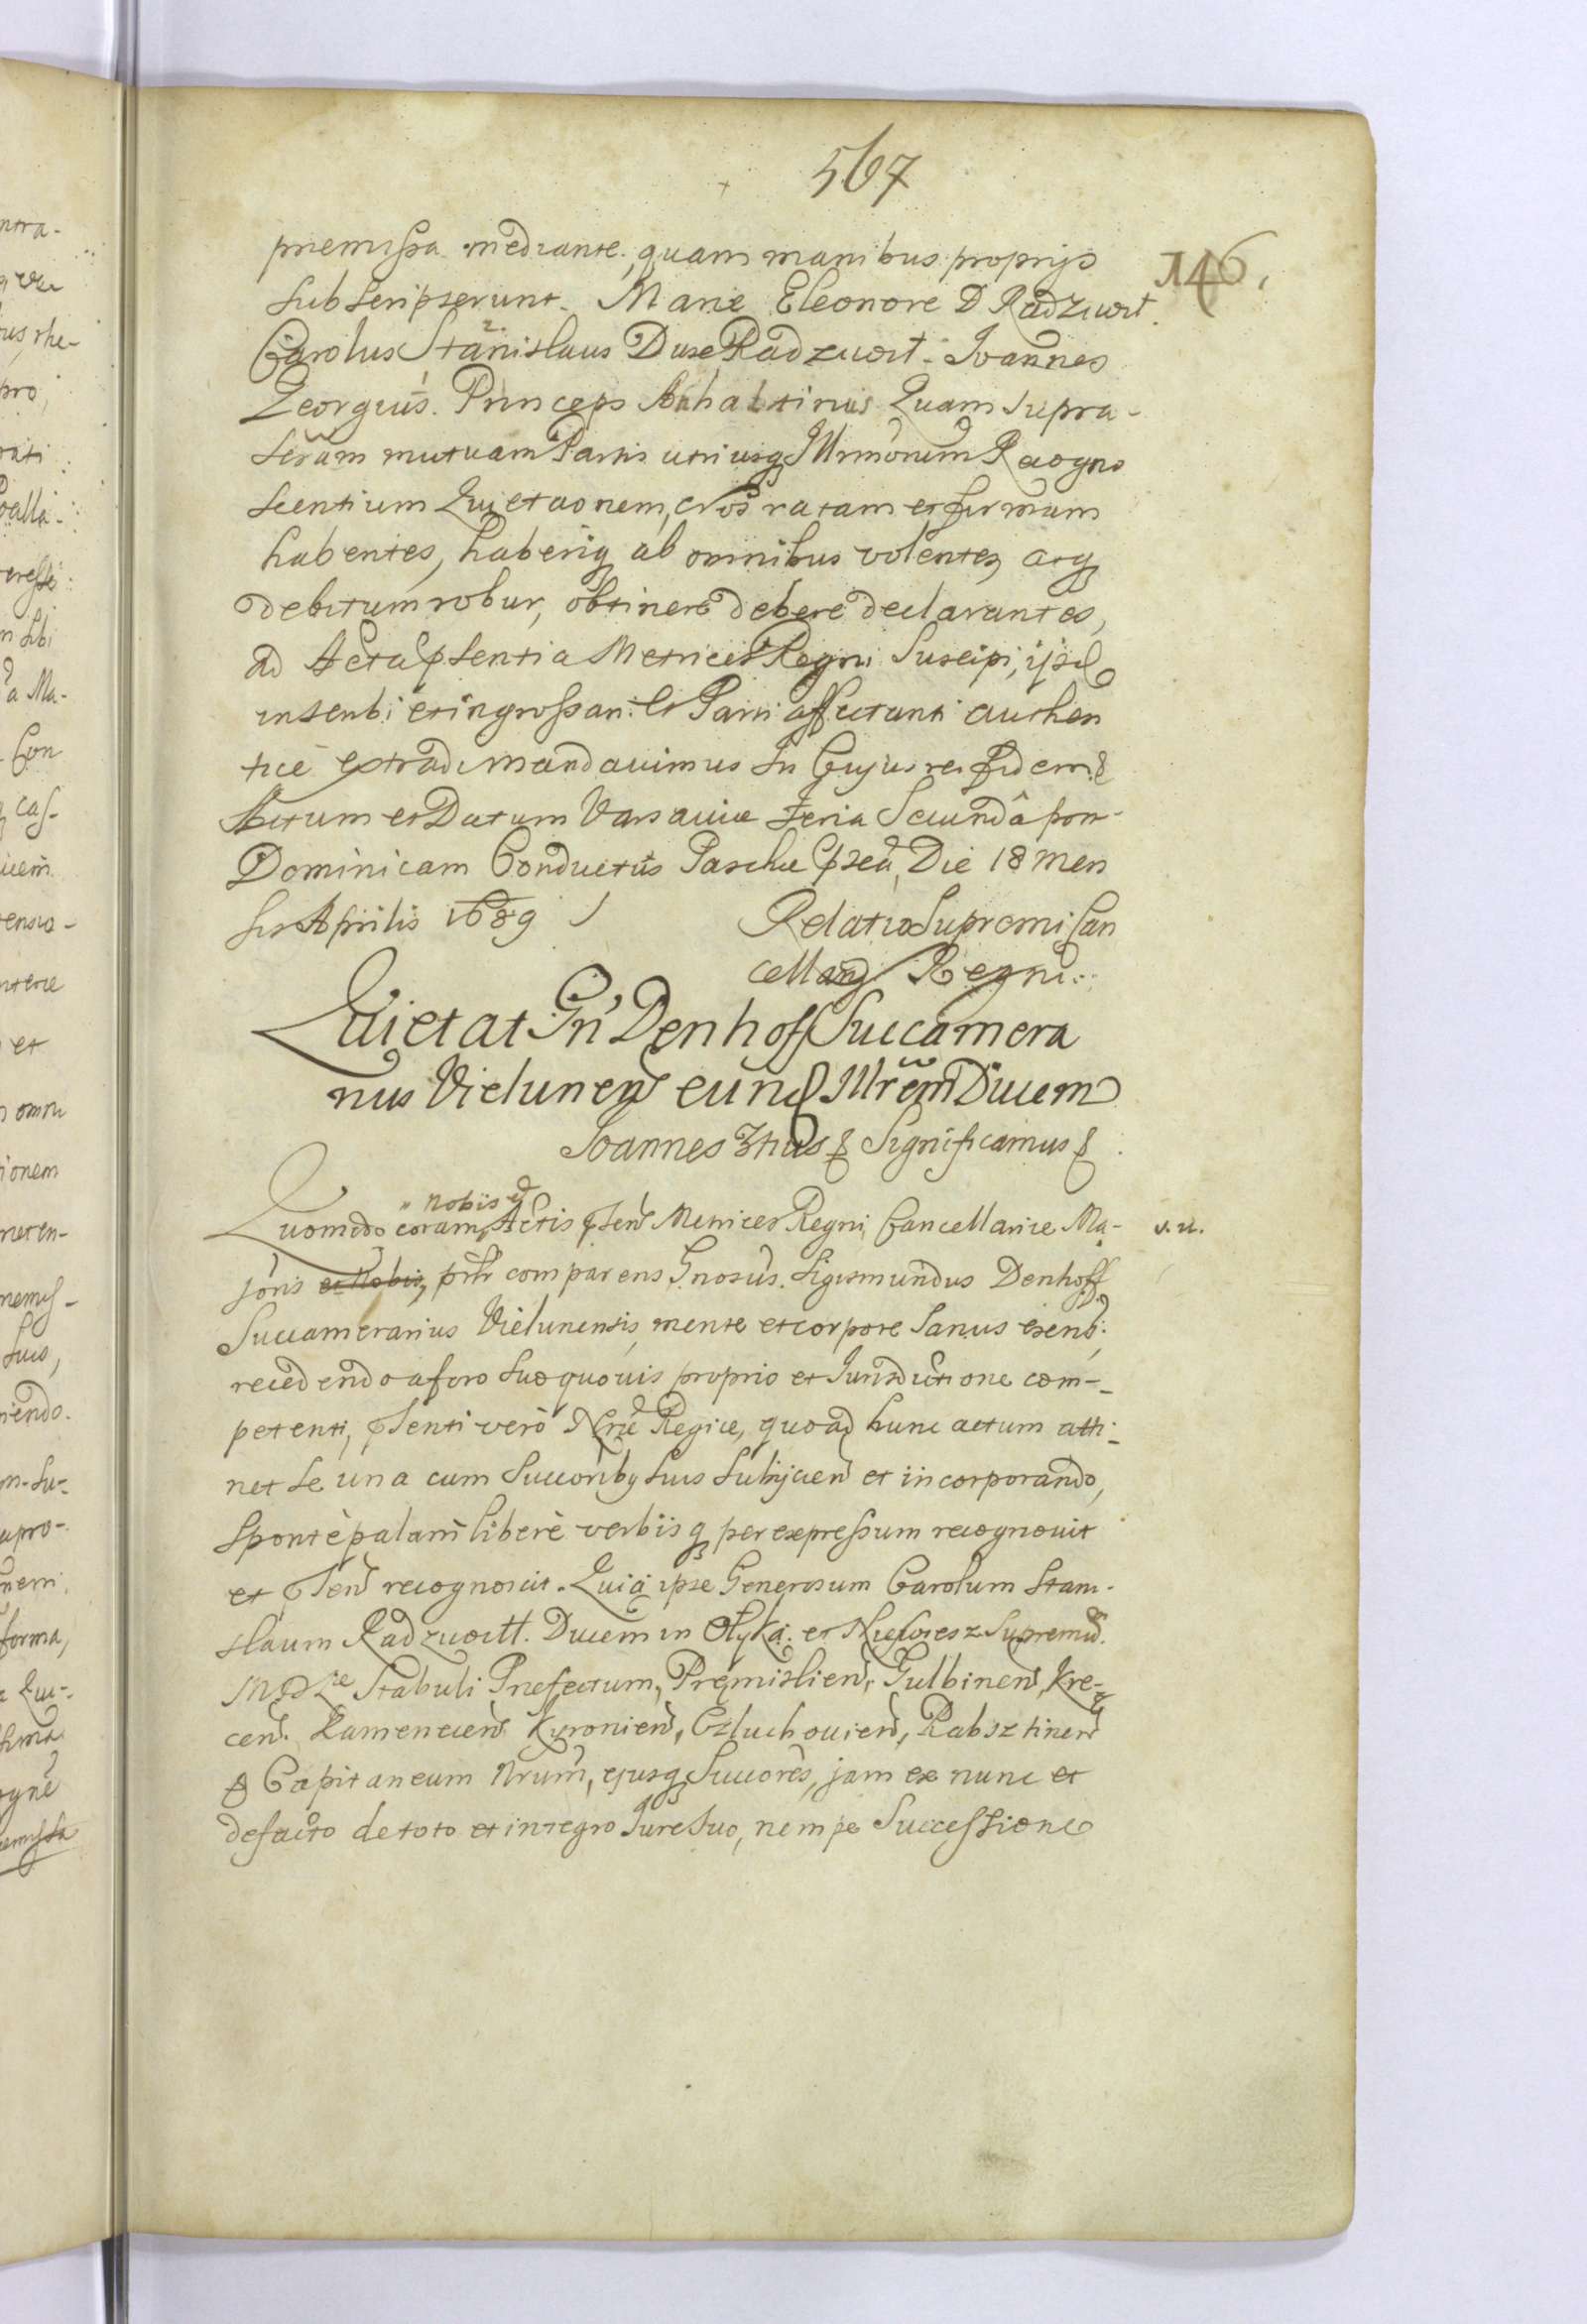 567
146.
præmissa mediante, quam manibus proprijs
subscripserunt. Marie Eleonore D Radziwił.
Carolus Stanislaus Dux Radziwił. Joannes
Georgius. Princeps Anhaltinus Quam supra-
scrãm mutuam Partis utriusq Illrmorum Recogno
scentium Quietaonem, Nos ratam et firmam
habentes, haberiq ab omnibus volentes, atq
debitum robur, obtinere debere declarantes,
ad Acta pſentia Metrices Regni Suscipi, ijsd
inscribi et ingrossari: et Parti affectanti authen
ticè extradi mandavimus In Cujus rei Fidem &
Actum et Datum Varsaviæ Feria Secundâ post
Dominicam Conductus Paschæ, Die 18 Men
sis Aprilis 1689
Relatio Supremi Can
cellarij Regni.
Quietat Gn Denhoff Succamera
rius Vielunens eund Illrem Ducem
Joannes 3tius & Significamus &
nobis et
Quomodo coram Actis pſens Metrices Regni Cancellariæ Ma- v. u.
joris et Nobis, psltr comparens Gnosus. Sigismundus Denhoff
Succamerarius Vielunensis, mente et corpore sanus existens,
recedendo a foro suo quovis proprio et Jurisdictione com-
petenti, pſenti verò Nræ Regiæ, quoad hunc actum atti-
net se una cum Succoribq suis subijciend et incorporando,
sponte palam liberè verbisq per expressum recognovit
et pſens recognoscit. Quia ipse Generosum Carolum Stani-
slaum Radziwiłł. Ducem in Ołyka et Nieswiesz Supremum
M D L Stabuli Præfectum, Premisliens, Gulbinens, Kre-
cens. Kamenecens Kyroniens, Czluchoviens, Rabsztinens
& Capitaneum Nrum, ejusq Succores, jam ex nunc et
defacto de toto et integro Jure suo, nempe Successione